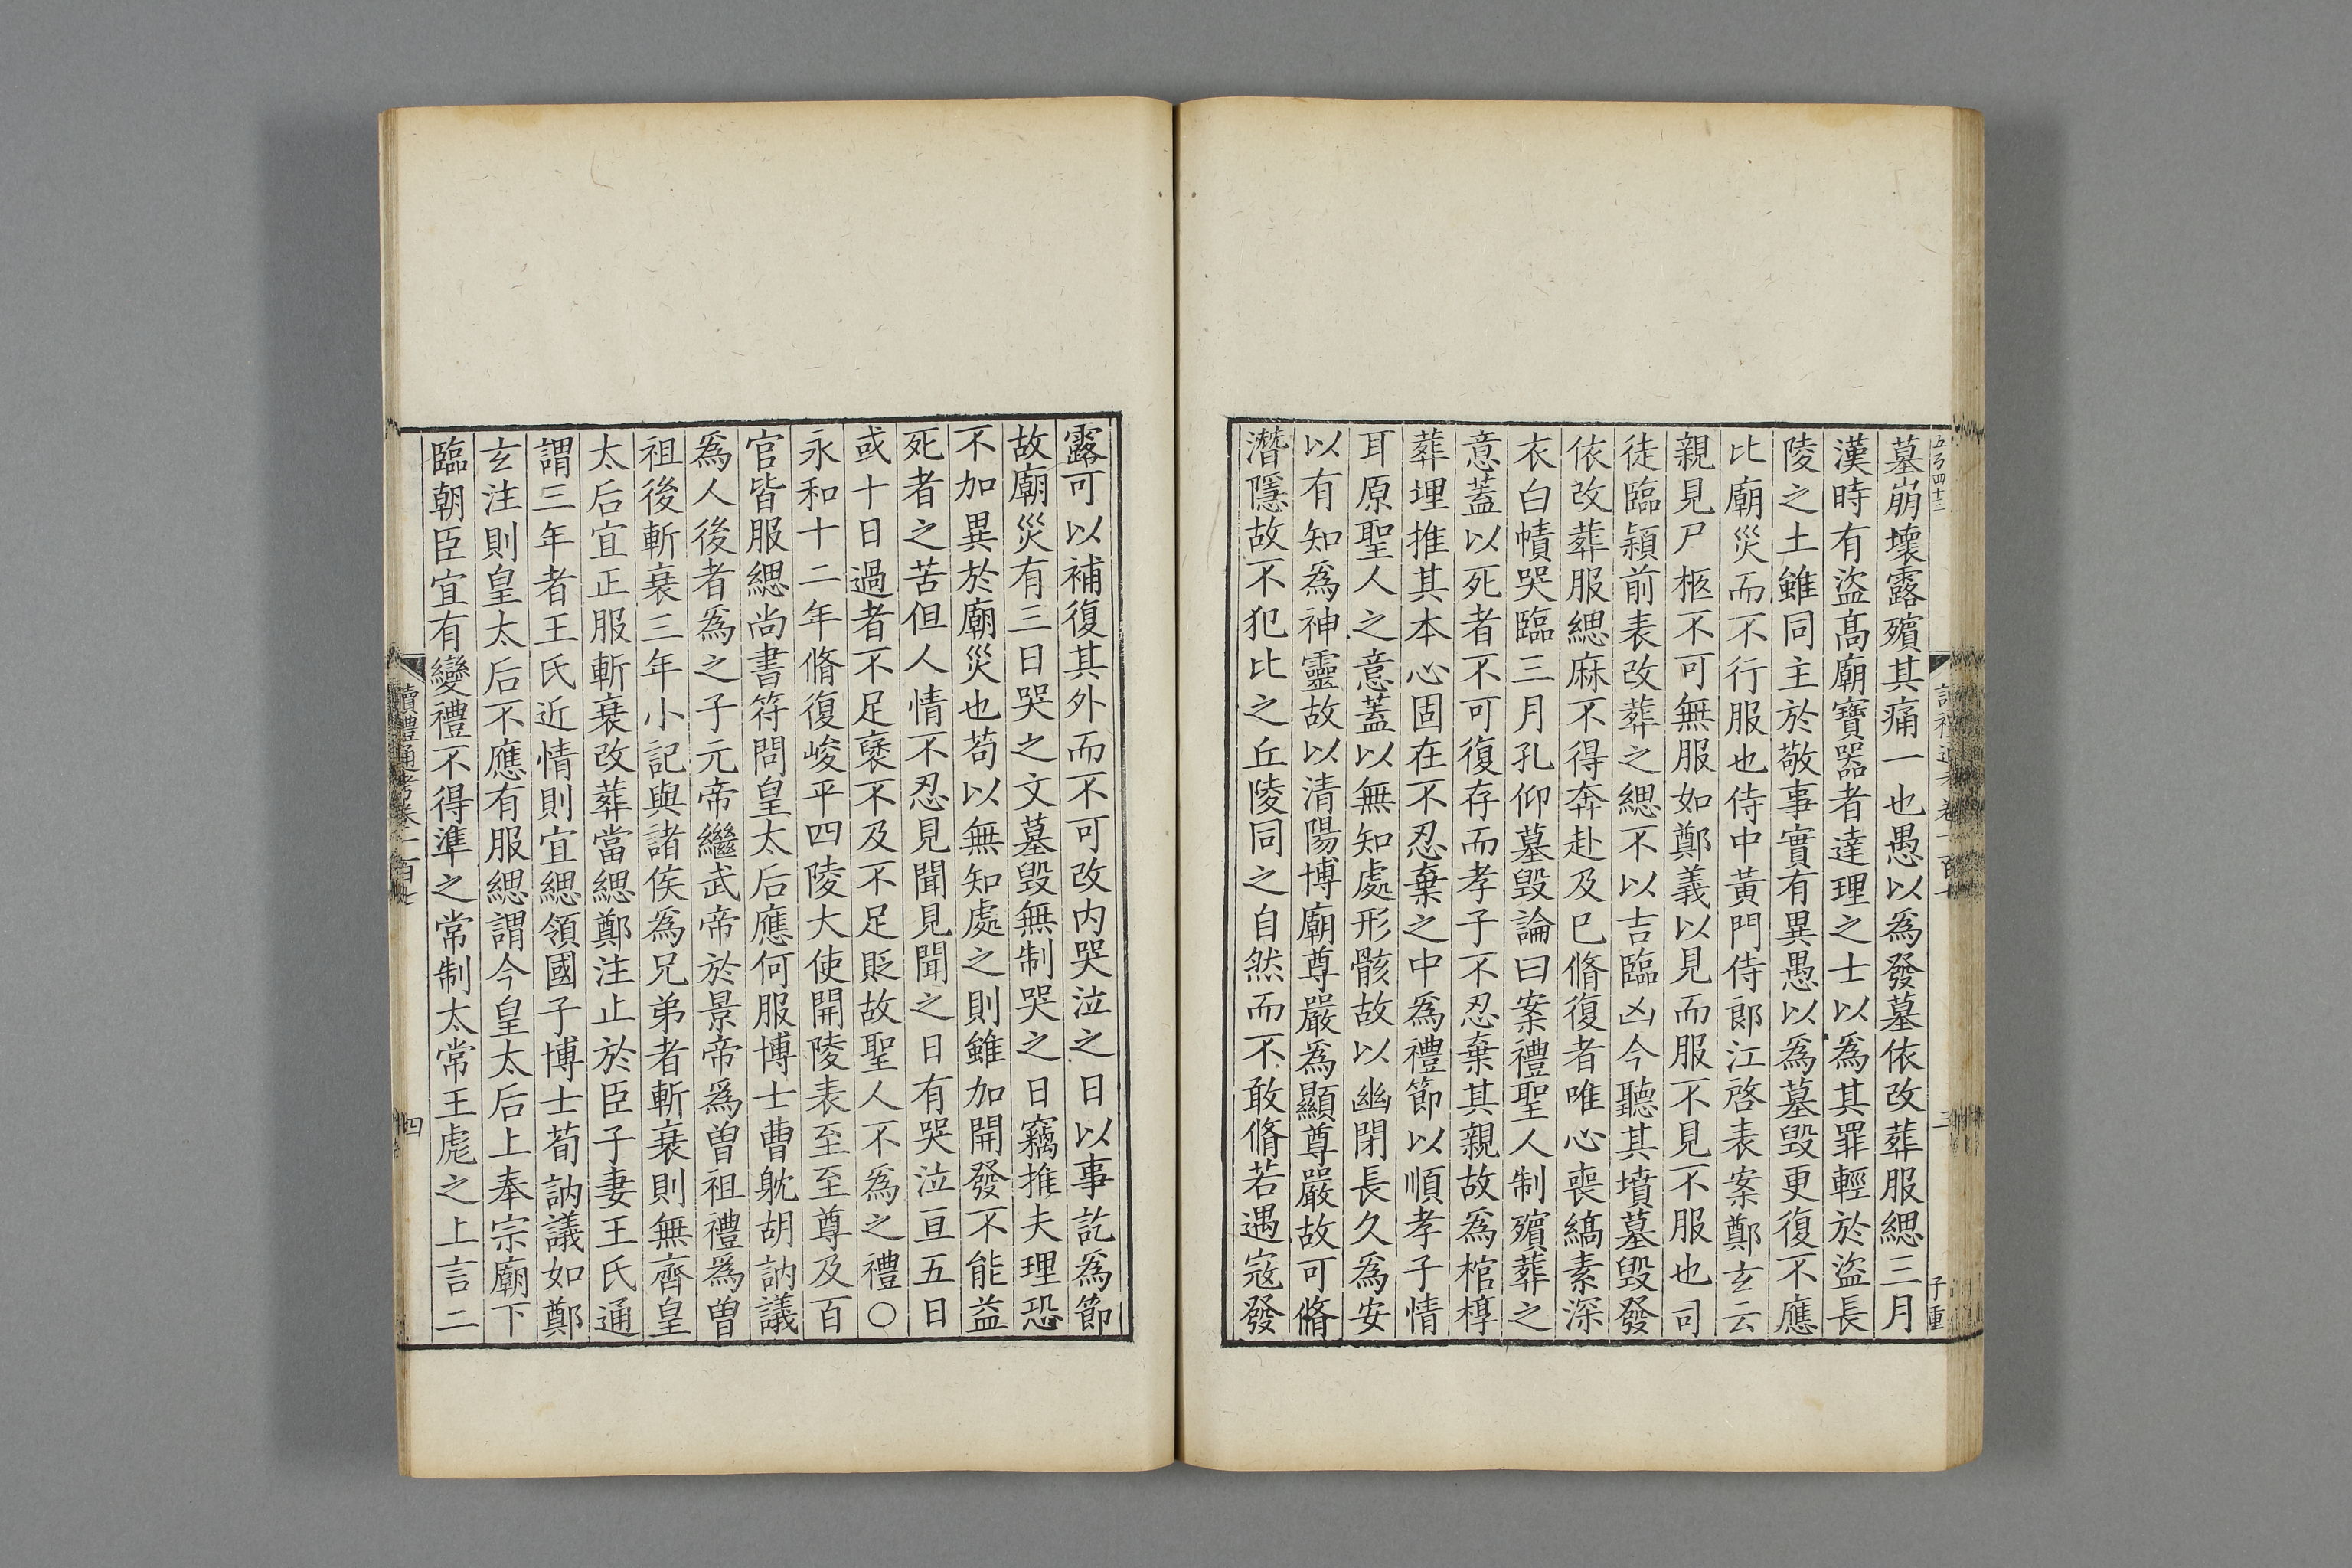 墓崩壞露殯其痛一也愚以爲發墓依改葬服緦三月
漢時有盜髙廟寶噐者達理之士以爲其罪輕於盜長
陵之土雖同主於敬事實有異愚以爲墓毀更復不應
比廟災而不行服也侍中黃門侍郎江啓表案鄭玄云
親見尸柩不可無服如鄭義以見而服不見不服也司
徒臨潁前表改葬之緦不以吉臨凶今聽其墳墓毀發
依改葬服緦麻不得奔赴及已脩復者唯心喪縞素深
衣白幘哭臨三月孔仰墓毀論曰案禮聖人制殯葬之
意蓋以死者不可復存而孝子不忍棄其親故爲棺椁
葬埋推其本心固在不忍棄之中爲禮節以順孝子情
耳原聖人之意蓋以無知處形骸故以幽閉長久爲安
以有知爲神靈故以清陽博廟尊嚴爲顯尊嚴故可脩
潛隱故不犯比之丘陵同之自然而不敢脩若遇寇發
露可以補復其外而不可改内哭泣之日以事訖爲節
故廟災有三日哭之文墓毀無制哭之日竊推夫理恐
不加異於廟災也苟以無知處之則雖加開發不能益
死者之苦但人情不忍見聞見聞之日有哭泣亘五日
或十日過者不足襃不及不足貶故聖人不爲之禮〇
永和十二年脩復峻平四陵大使開陵表至至尊及百
官皆服緦尚書符問皇太后應何服博士曹躭胡訥議
爲人後者爲之子元帝繼武帝於景帝爲曽祖禮爲曽
祖後斬衰三年小記與諸矦爲兄弟者斬衰則無齊皇
太后宜正服斬衰改葬當緦鄭注止於臣子妻王氏通
謂三年者王氏近情則宜緦領國子博士荀訥議如鄭
玄注則皇太后不應有服緦謂今皇太后上奉宗廟下
臨朝臣宜有變禮不得準之常制太常王彪之上言二
讀禮通考卷一百七
四
三
子重